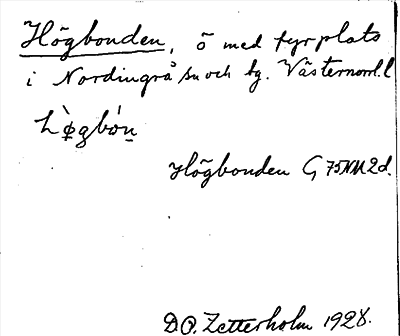 Högbonden, ö med fyrplats
i Nordingrå sn och tg. Västernorrl. l
Högbonden G 75NM2d.
D.O. Zetterholm 1928.